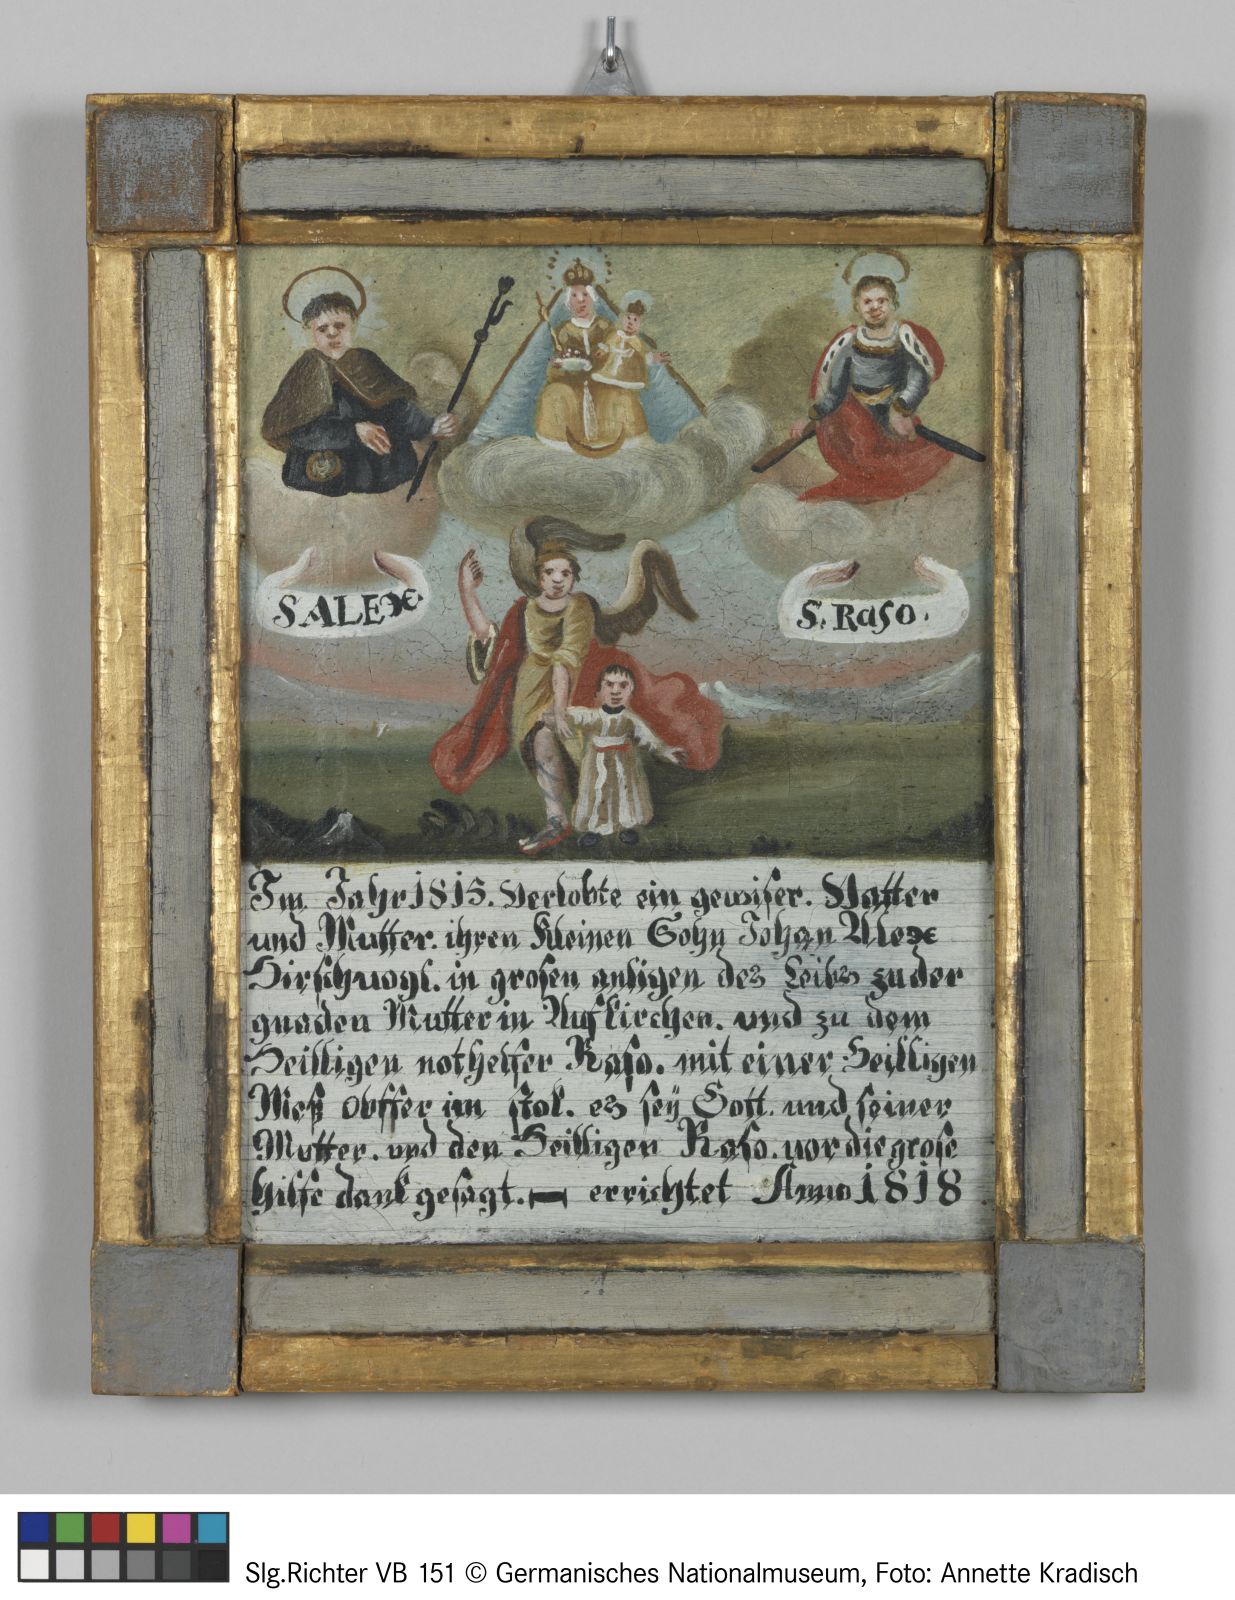 SALEX
S. RASO.
Im Jahr 1815. Verlobte ein gewiser. Vatter
und Mutter. ihren Kleinen Sohn Johan Alex
Hirschvogl. in grosen anligen des Leibs zu der
gnaden Mutter in Aufkirchen. und zu dem
Heilligen nothelfer Raso. mit einer Heilligen
Meß opffer im stok. es seÿ Gott. und seiner
Mutter. und den Heilligen Raso. vor die grose
hilfe dank gesagt. errichtet Anno 1818
Slg.Richter VB 151 © Germanisches Nationalmuseum, Foto: Annette Kradisch